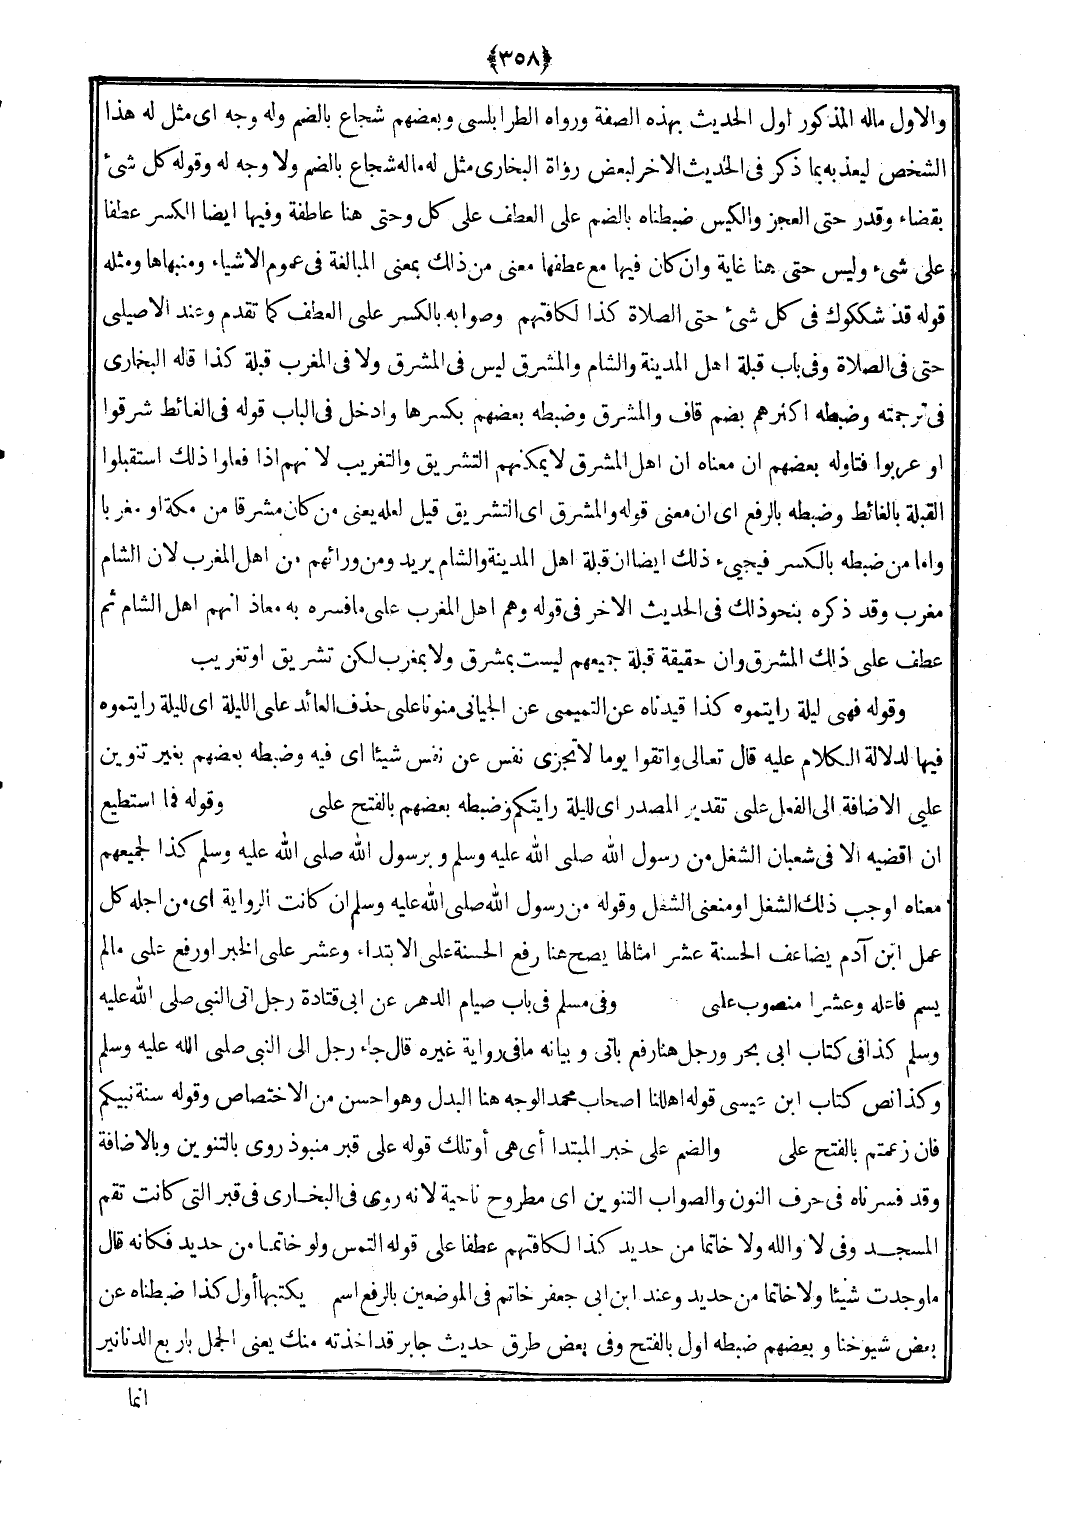 ﴿٣٥٨﴾
والاول ماله المذكور اول الحديث بهذه الصفة ورواه الطرابلسى وبعضهم شجاع بالضم وله وجه اى مثل له هذا
الشخص ليعذبه بما ذكر فى الحديث الاخر لبعض رواة البخارى مثل له ماله شجاع بالضم ولا وجه له وقوله كل شئ
بقضاء وقدر حتى العجز والكيس ضبطناه بالضم على العطف على كل وحتى هنا عاطفة وفيها ايضا الكسر عطفا
على شىء وليس حتى هنا غاية وان كان فيها مع عطفها معنى من ذلك بمعنى المبالغة فى عموم الاشياء ومنبهاها ومثله
قوله قد شككوك فى كل شئ حتى الصلاة كذا لكافتهم وصوابه بالكسر على العطف كما تقدم وعند الاصيلى
حتى فى الصلاة وفى باب قبلة اهل المدينة والشام والمشرق ليس فى المشرق ولا فى المغرب قبلة كذا قاله البخارى
فى ترجمته وضبطه اكثرهم بضم قاف والمشرق وضبطه بعضهم بكسرها وادخل فى الباب قوله فى الغائط شرقوا
او عربوا فتاوله بعضهم ان معناه ان اهل المشرق لا يمكنهم التشريق والتغريب لا نهم اذا فعلوا ذلك استقبلوا
القبلة بالغائط وضبطه بالرفع اى ان معنى قوله والمشرق اى التشريق قيل لعله يعنى من كان مشرقا من مكة او مغربا
واما من ضبطه بالكسر فيجيء ذلك ايضا ان قبلة اهل المدينة والشام يريد ومن ورائهم من اهل المغرب لان الشام
مغرب وقد ذكره بنحو ذلك فى الحديث الاخر فى قوله وهم اهل المغرب على ما فسره به معاذ انهم اهل الشام ثم
عطف على ذلك المشرق وان حقيقة قبلة جميعهم ليست بمشرق ولا بمغرب لكن تشريق او تغريب
وقوله فهى ليلة رايتموه كذا قيدناه عن التميمى عن الجيانى منونا على حذف العائد على الليلة اى لليلة رايتموه
فيها لدلالة الكلام عليه قال تعالى واتقوا يوما لا تجزى نفس عن نفس شيئا اى فيه وضبطه بعضهم بغير تنوين
على الاضافة الى الفعل على تقدير المصدر اى لليلة رايتكم وضبطه بعضهم بالفتح على وقوله فما استطيع
ان اقضيه الا فى شعبان الشغل من رسول الله صلى الله عليه وسلم و برسول الله صلى الله عليه وسلم كذا لجميعهم
معناه اوجب ذلك الشغل او منعنى الشغل وقوله من رسول الله صلى الله عليه وسلم ان كانت الرواية اى من اجله كل
عمل ابن آدم يضاعف الحسنة عشر امثالها يصح هنا رفع الحسنة على الابتداء وعشر على الخبر او رفع على مالم
يسم فاعله وعشرا منصوب على وفى مسلم فى باب صيام الدهر عن ابى قتادة رجل اتى النبى صلى الله عليه
وسلم كذا فى كتاب ابى بحر ورجل هنا رفع باتى و بيانه ما فى رواية غيره قال جاء رجل الى النبى صلى الله عليه وسلم
وكذا نص كتاب ابن عيسى قوله اهللنا اصحاب محمد الوجه هنا البدل وهو احسن من الاختصاص وقوله سنة نبيكم
فان زعمتم بالفتح على والضم على خبر المبتدا أى هى أو تلك قوله على قبر منبوذ روى بالتنوين وبالاضافة
وقد فسرناه فى حرف النون والصواب التنوين اى مطروح ناحية لانه روى فى البخارى فى قبر التى كانت تقم
المسجد وفى لا والله ولا خاتما من حديد كذا لكافتهم عطفا على قوله التمس ولو خاتما من حديد فكانه قال
ما وجدت شيئا ولا خاتما من حديد وعند ابن ابى جعفر خاتم فى الموضعين بالرفع اسم يكتبها أول كذا ضبطناه عن
بعض شيوخنا و بعضهم ضبطه اول بالفتح وفى بعض طرق حديث جابر قد اخذته منك يعنى الجمل باربع الدنانير
انما